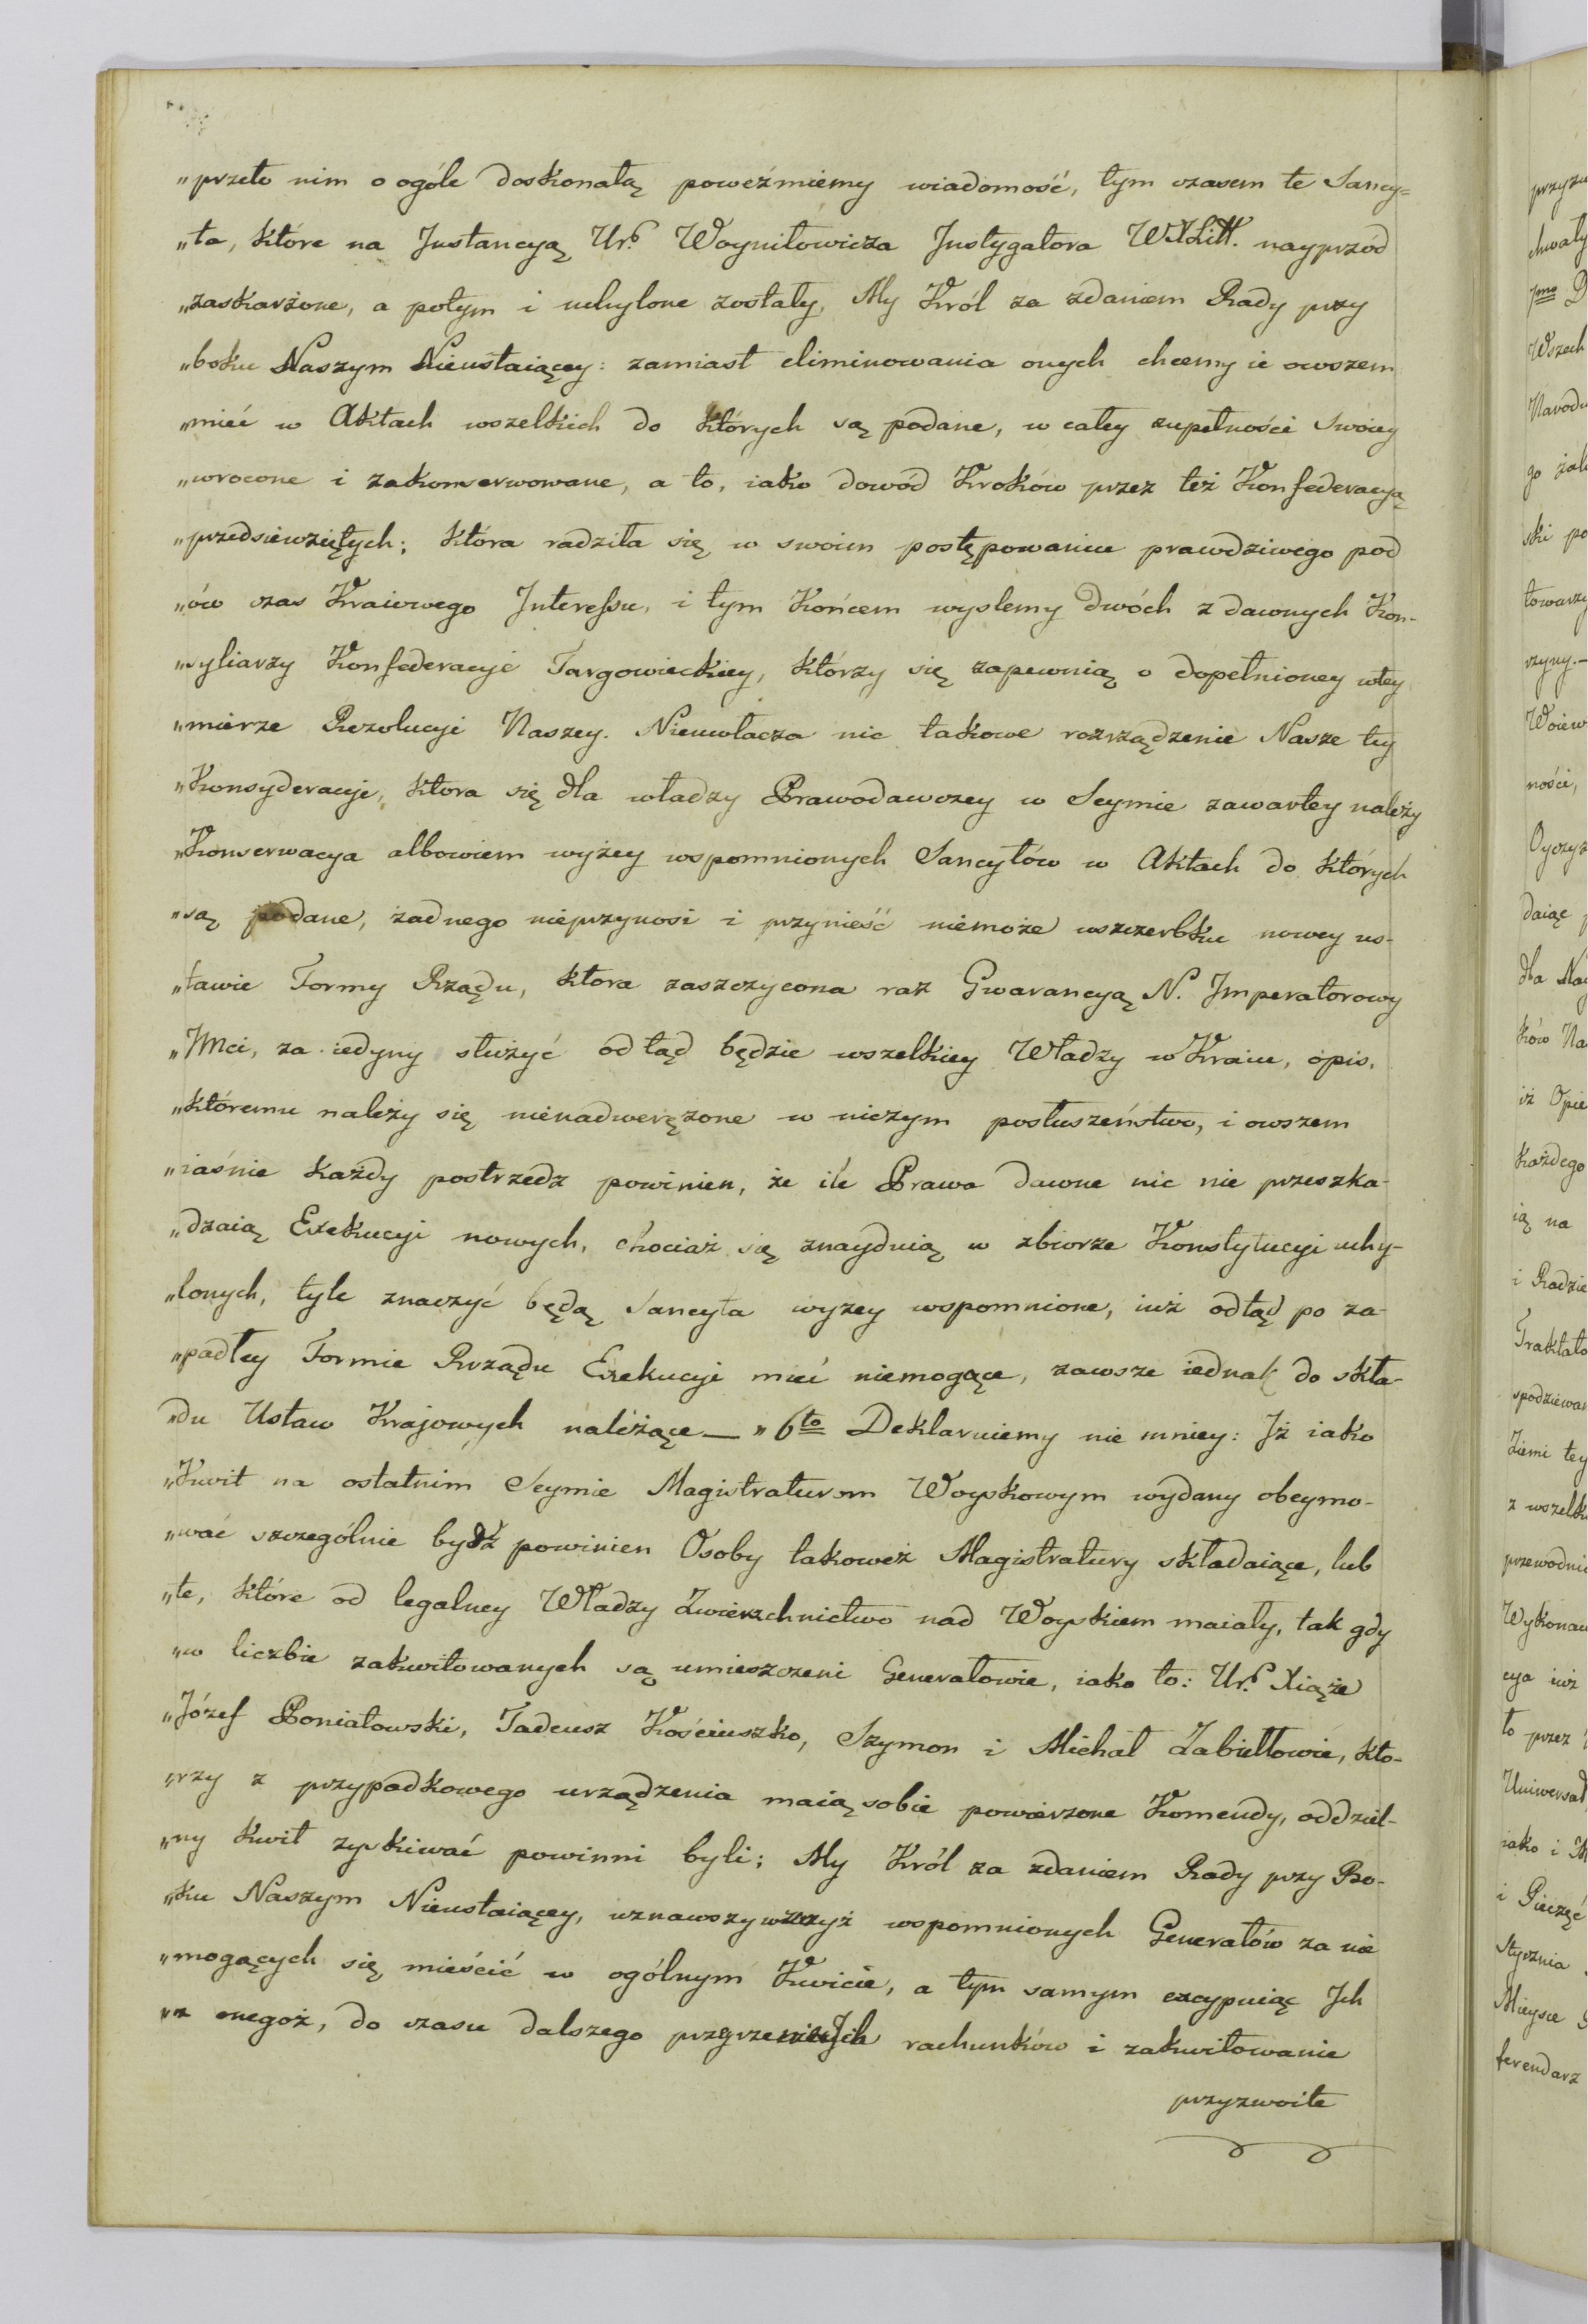 „przeto nim o ogóle doskonałą poweźmiemy wiadomość, tym czasem te Sancy=
„ta, które na Instancyą Ur. Woyniłowicza Instygatora WXLitt. nayprzód
„zaskarżone, a potym i uchylone zostały, My Król za zdaniem Rady przy
„boku Naszym Nieustaiącey: zamiast eliminowania onych chcemy ie owszem
„mieć w Aktach wszelkich do których są podane, w całey zupełności swoiey
„wrocone i zakonserwowane, a to, iako dowód Kroków przez też Konfederacyą
„przedsiewziętych; która radziła się w swoim postępowaniu prawdziwego pod
„ów czas Kraiowego Interessu, i tym Końcem wyslemy dwóch z dawnych Kon-
„syliarzy Konfederacyi Targowickiey, którzy się zapewnią o dopełnioney wtey
„mierze Rezolucyi Naszey. Nieuwłacza nic takowe rozrządzenie Nasze tey
„Konsyderacyi, ktora się dla władzy Prawodawczey w Seymie zawartey należy
„Konserwacya albowiem wyżey wspomnionych Sancytów w Aktach do których
„są podane, żadnego nieprzynosi i przynieść niemoże uszczerbku nowey us-
„tawie Formy Rządu, ktora zaszczycona raz Gwarancyą N. Imperatorowy
„JMci, za iedyny służyć odtąd będzie wszelkiey Władzy w Kraiu, opis,
„któremu należy się nienadwerężone w niczym posłuszeństwo, i owszem
„iaśnie każdy postrzedz powinien, że ile Prawa dawne nic nie przeszka-
„dzaią Exekucyi nowych, chociaż się znayduią w zbiorze Konstytucyi uchy-
„lonych, tyle znaczyć będą Sancyta wyżey wspomnione, iuż odtąd po za-
„padłey Formie Rządu Exekucyi mieć niemogące, zawsze iednak do skła-
„du Ustaw Krajowych należące — „6to Deklaruiemy nie mniey: Iż iako
„Kwit na ostatnim Seymie Magistraturom Woyskowym wydany obeymo-
„wać szczególnie bydź powinien Osoby takoweż Magistratury składaiące, lub
„te, które od legalney Władzy Zwierzchnictwo nad Woyskiem maiały, tak gdy
„w liczbie zakwitowanych są umieszczeni Generałowie, iako to: Ur. Xiąże
„Józef Poniatowski, Tadeusz Kościuszko, Szymon i Michał Zabiełłowie, kto-
„rzy z przypadkowego urządzenia maią sobie powierzone Komendy, oddziel-
„ny kwit zyskiwać powinni byli; My Król za zdaniem Rady przy Bo-
„ku Naszym Nieustaiącey, uznawszy wzwyż wspomnionych Generałów za nie
„mogących się mieścić w ogólnym Kwicie, a tym samym excypuiąc Ich
„z onegoż, do czasu dalszego przeyrzenia Ich rachunków i zakwitowanie
przyzwoite